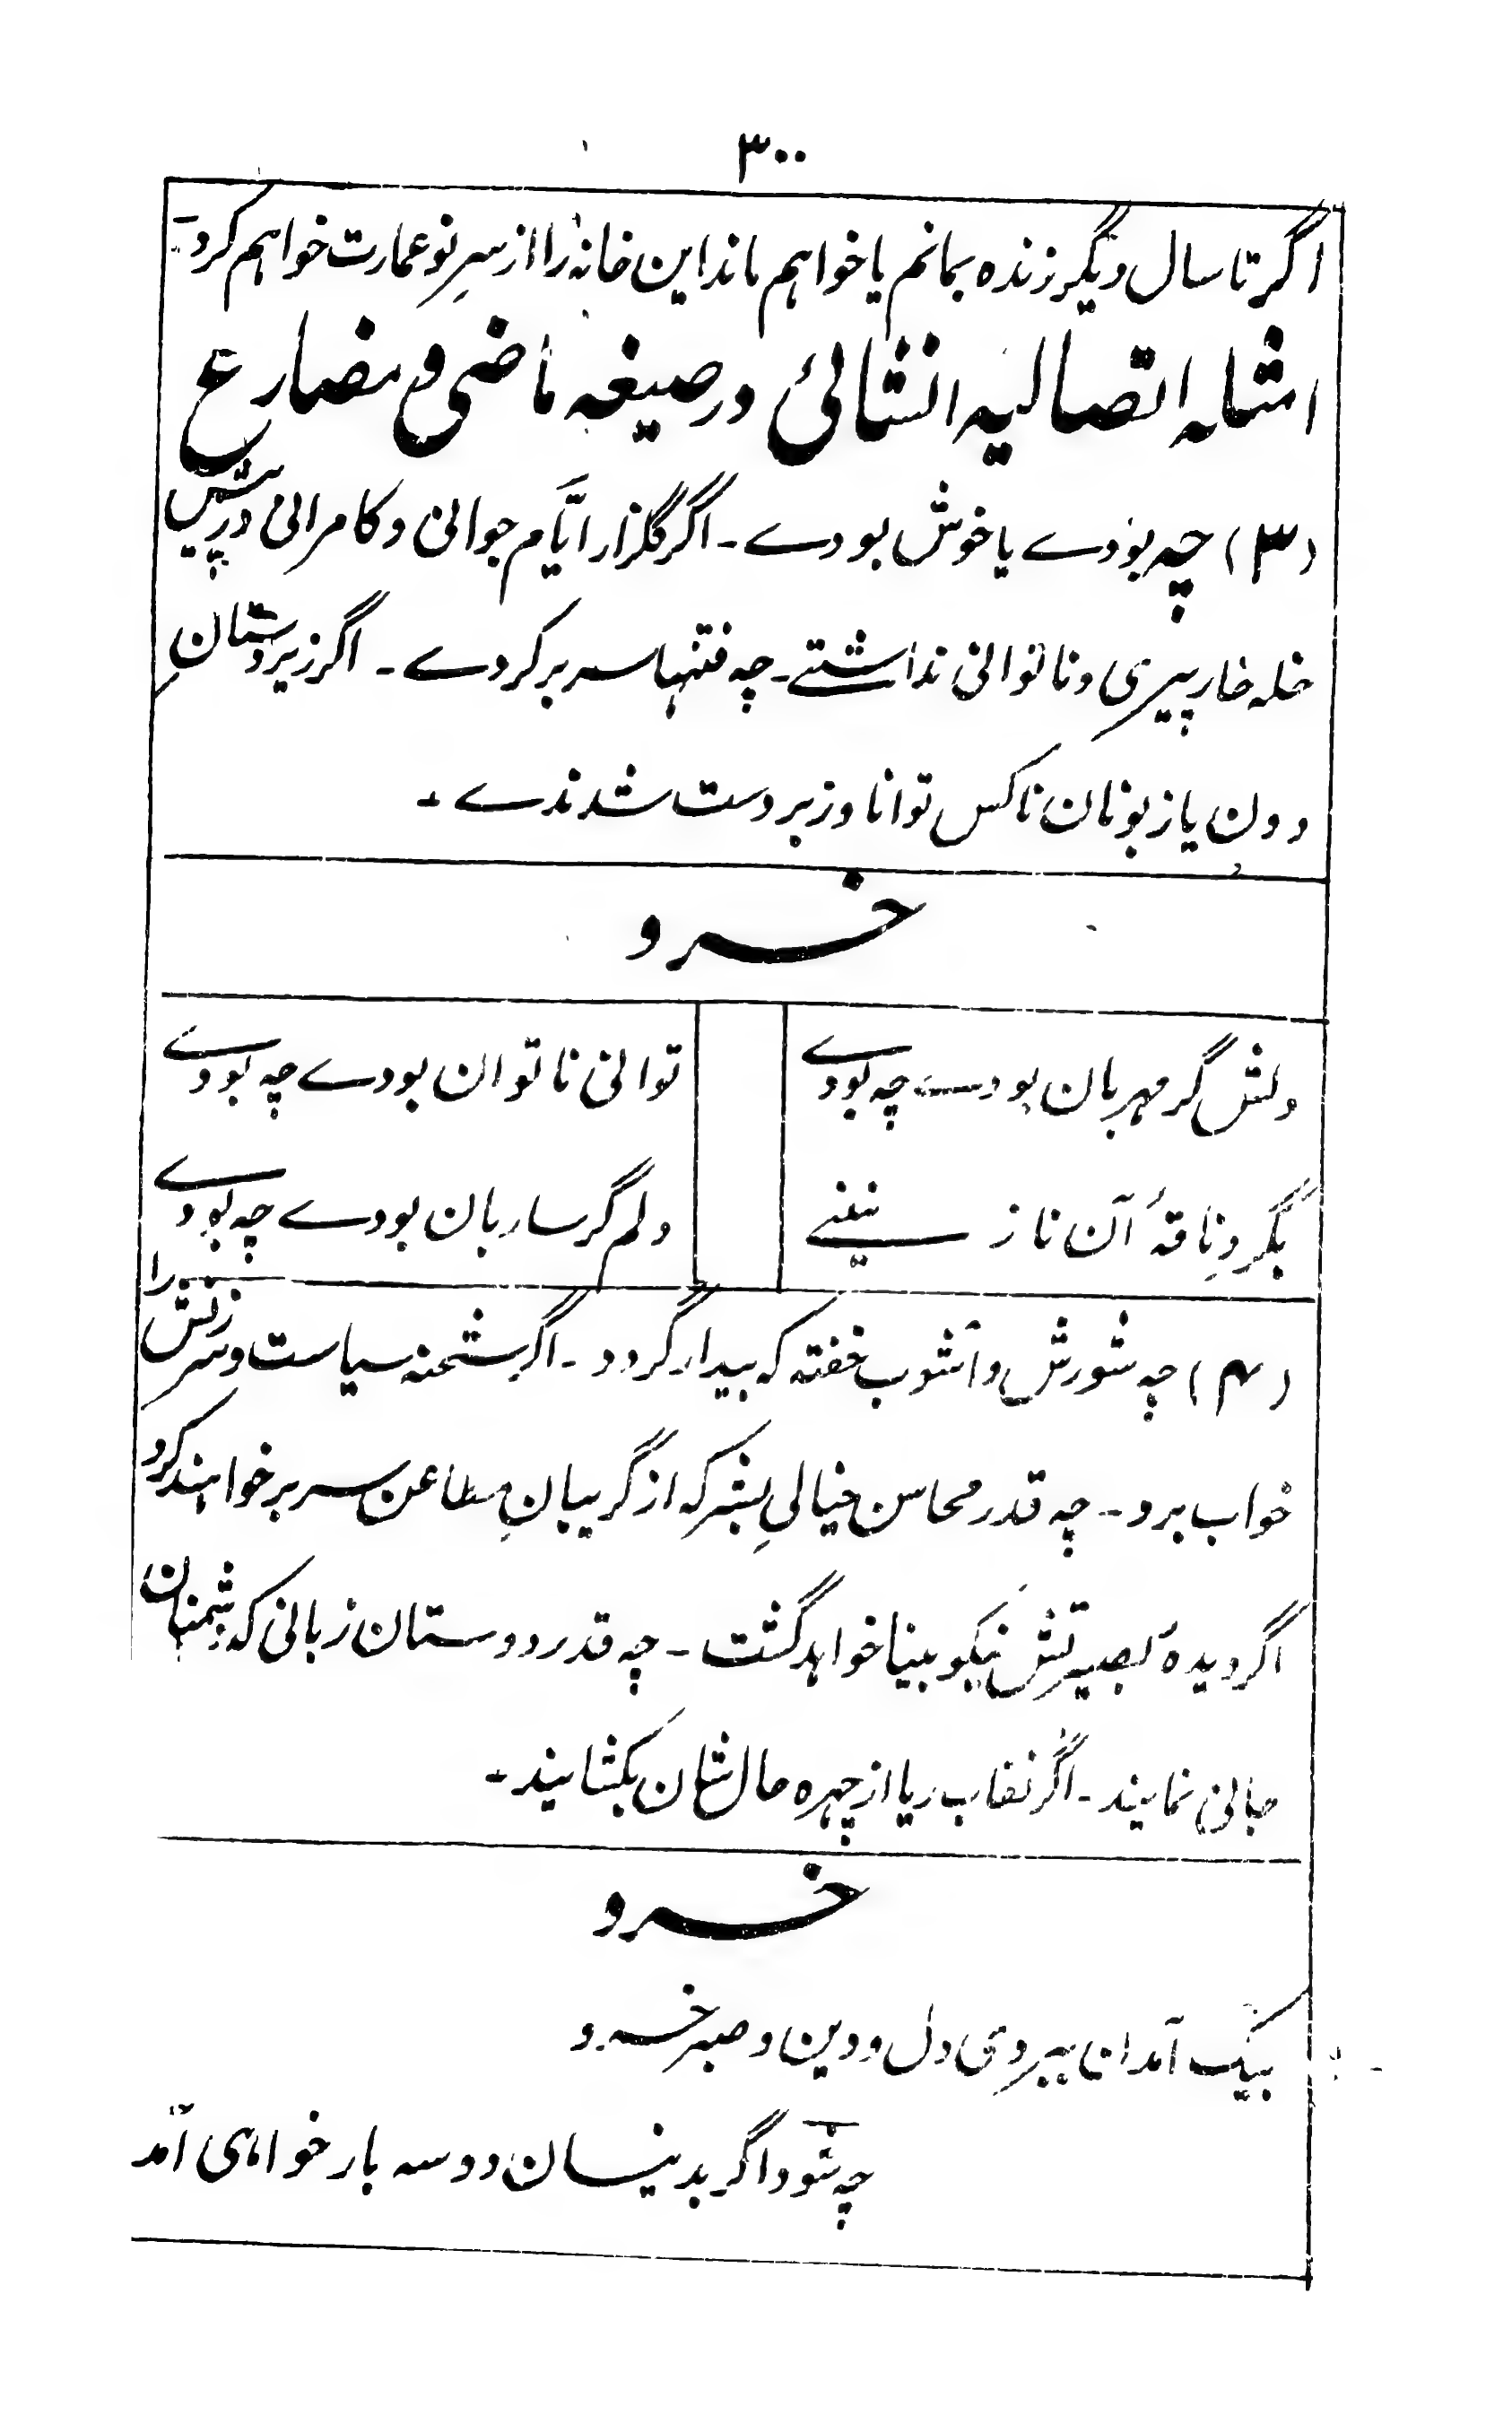 ۳۰۰
اگر تا سال دیگر زنده بمانم یا خواهم ماند این خانه را از سرِ نو عمارت خواهم کرد۔
امثله اتصالیه انشائی در صیغه ماضی و مضارع
(۳) چه بودے یا خوش بودے۔ اگر گلزار ایّام جوانی و کامرانی در پیش
خله خار پیری و ناتوانی نداشتے۔ چه فتنها سر بر کردے۔ اگر زیردستانِ
دون یا زبونان ناکس توانا و زبردست شدندے۔
خسرو
دلش گر مهربان بودے چه بودے
توانی ناتوان بودے چه بودے
بگردِ ناقهٔ آن نازنینے
دلم گر ساربان بودے چه بودے
(۴) چه شورش و آشوب خفته که بیدار گردد۔ اگر شحنه سیاست و سرزنش را
خواب برد۔ چه قدر محاسن خیالیِ بشر که از گریبانِ مطاعن سر بر خواهند کرد
اگر دیدهٔ بصیرتش نیکو بینا خواهد گشت۔ چه قدر دوستان زبانی که دشمنان
جانی نمایند۔ اگر نقاب ریا از چهره حال شان بکشایند۔
خسرو
بیک آمدن ببردی دل و دین و صبر خسرو
چه شود اگر بدینسان دو سه بار خواهی آمد